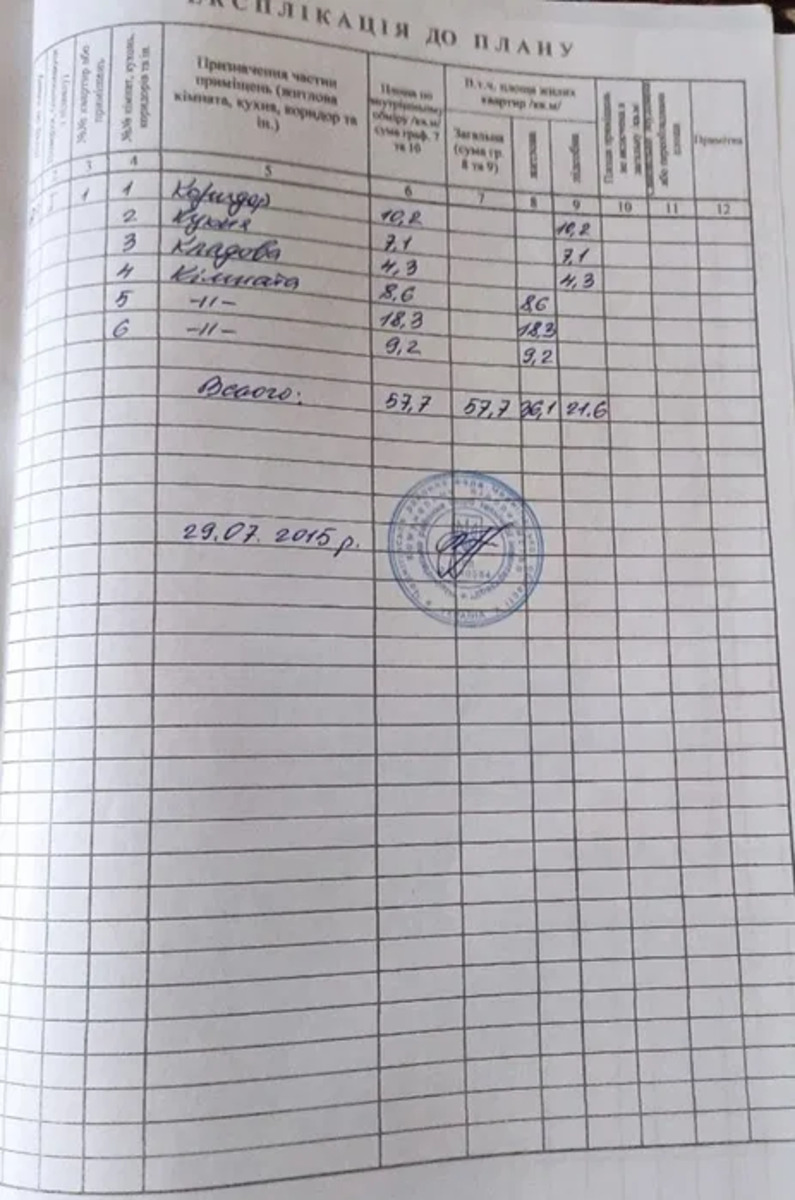 ЕКСПЛІКАЦІЯ ДО ПЛАНУ
№№ квартир або приміщень
№№ кімнат, кухонь, коридорів та ін.
Призначення частин приміщень (житлова кімната, кухня, коридор та ін.)
Площа по внутрішньому обміру /кв.м/ сума граф. 7 та 10
В т.ч. площа жилих квартир /кв.м/
Загальна (сума гр. 8 та 9)
житлова
підсобна
Площа приміщень не включена в загальну
або переобладнана площа
Примітка
2 3 4 5 6 7 8 9 10 11 12
1 1 Коридор 10,2 10,2
2 Кухня 7,1 7,1
3 Кладова 4,3 4,3
4 Кімната 8,6 8,6
5 -//- 18,3 18,3
6 -//- 9,2 9,2
Всього: 57,7 57,7 36,1 21.6
29.07. 2015 р.